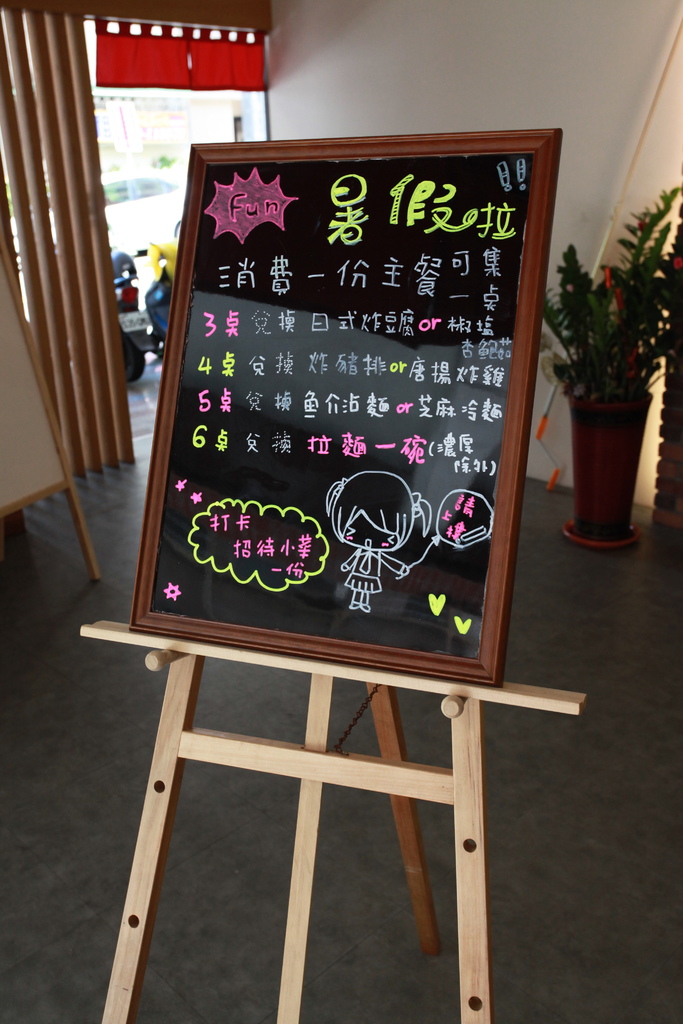 Fun 暑假拉!!
消費一份主餐可集一桌
3桌 兌換 日式炸豆腐or椒塩杏鮑菇
4桌 兌換 炸豬排or唐揚炸雞
5桌 兌換 魚介沾麵or芝麻冷麵
6桌 兌換 拉麵一碗(濃厚除外)
打卡
招待小菜
一份
請上樓